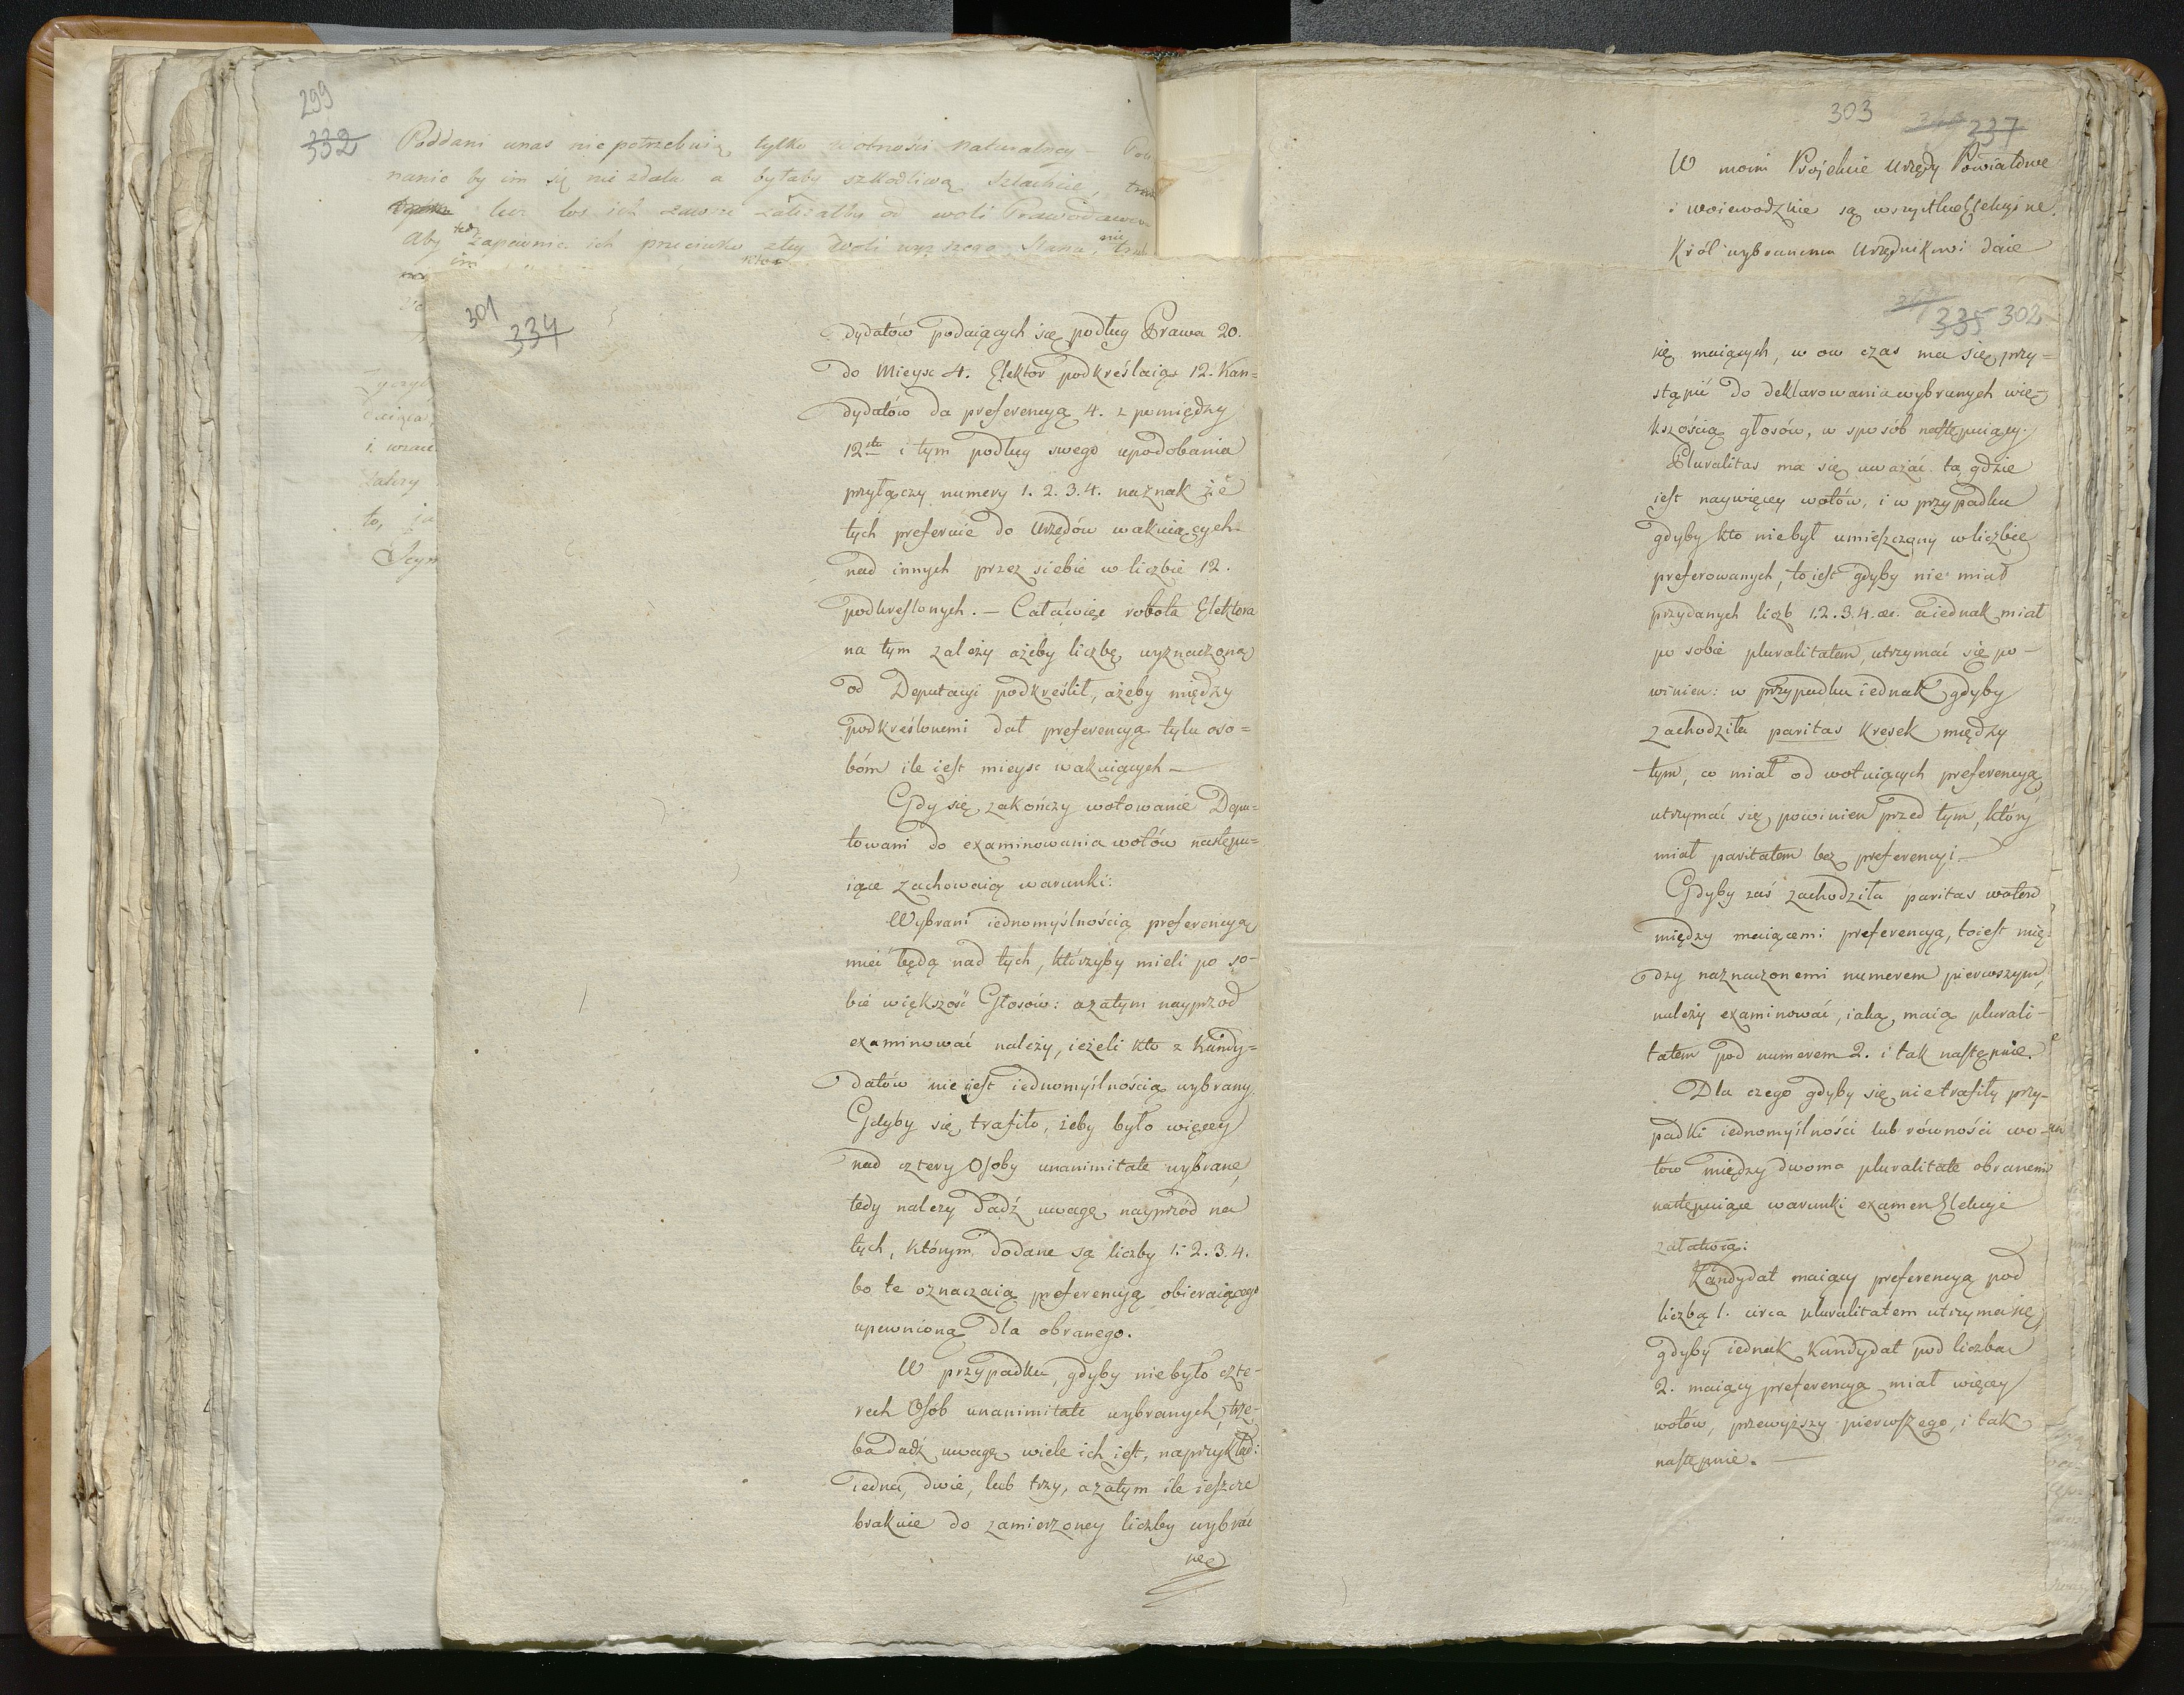 299
332
Poddani unas niepotrzebuią tylko wolności naturalney —
nanie by im się nie zdała a byłaby szkodliwą Szlachcie,
lecz los ich zawsze zależałby od woli Prawodawcy
Aby tedy zapewnić ich przeciwko złey woli wyższego Stanu, nie
im
i wrac
to,
Seym
301
334
dydatów podaiących się podług Prawa 20.
do Mieysc 4. Elektor podkreślaiąc 12. Kan=
dydatów da preferencyą 4. z pomiędzy
12stu i tym podług swego upodobania
przyłączy numery 1. 2. 3. 4. naznak że
tych preferuie do Urzędów wakuiących
nad innych przez siebie w liczbie 12.
podkreślonych. — Cała więc robota Elektora
na tym zależy ażeby liczbę wyznaczoną
od Deputacyi podkreślił, ażeby między
podkreślonemi dał preferencyą tylu oso=
bóm ile iest mieysc wakuiących —
Gdy się zakończy wotowanie Depu=
towani do examinowania wotów następu=
iące zachowaią warunki:
Wybrani iednomyślnością preferencyą
mieć będą nad tych, którzyby mieli po so-
bie większość Głosów: azatym nayprzod
examinować należy, ieżeli kto z Kandy=
datów nie iest iednomyślnością wybrany.
Gdyby się trafiło, żeby było więcey
nad cztery Osoby unanimitate wybrane,
tedy nalezy dadź uwagę nayprzód na
tych, którym dodane są liczby 1. 2. 3. 4.
bo te oznaczaią preferencyą obieraiącego
upewnioną dla obranego.
W przypadku, gdyby niebyło czte-
rech Osób unanimitate wybranych, trze-
ba dadź uwagę wiele ich iest, naprzykład:
iedna, dwie, lub trzy, azatym ile ieszcze
brakuie do zamierzoney liczby wybrać
się
303
337
W moim Proiekcie Urzędy Powiatowe
i woiewodzkie są wszystkie Elekcyine.
Król wybranemu Urzędnikowi daie
335 302
się maiących, w ow czas ma się przy=
stąpić do deklarowania wybranych wię-
kszością głosów, w sposób następuiący.
Pluralitas ma się uważać ta gdzie
iest naywięcey wotów, i w przypadku
gdyby kto niebył umieszczony w liczbie
preferowanych, to iest gdyby nie miał
przydanych liczb 1. 2. 3. 4. &c. a iednak miał
po sobie pluralitatem, utrzymać się po-
winien: w przypadku iednak gdyby
zachodziła paritas kresek między
tym, co miał od wotuiących preferencyą
utrzymać się powinien przed tym, który
miał paritatem bez preferencyi —
Gdyby zaś zachodziła paritas wotów
między maiącemi preferencyą, to iest mię-
dzy naznaczonemi numerem pierwszym,
należy examinować, iaką maią plurali-
tatem pod numerem 2. i tak następnie.
Dla czego gdyby się nie trafiły przy-
padki iednomyślności lub równości wo-
tów między dwoma pluralitate obranemi
następuiące warunki examen Elekcyi
załatwią:
Kandydat maiący preferencyą pod
liczbą 1. circa pluralitatem utrzyma się,
gdyby iednak Kandydat pod liczbą
2. maiący preferencyą miał więcey
wotów, przewyższy pierwszego, i tak
następnie. —